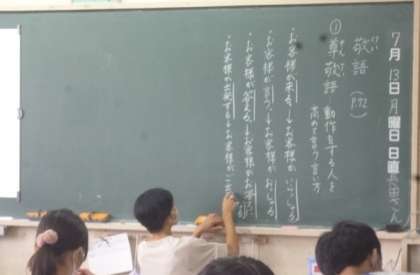 7月13日月曜日 日直 さん
敬語 けい
① 尊敬語 そんけいご 動作をする人を
高めて言う言い方
・お客様が来る→お客様がいらっしゃる
・お客様が言う→お客様がおっしゃる
・お客様が答える→お客様がお答え
・お客様が出発する→お客様がご出